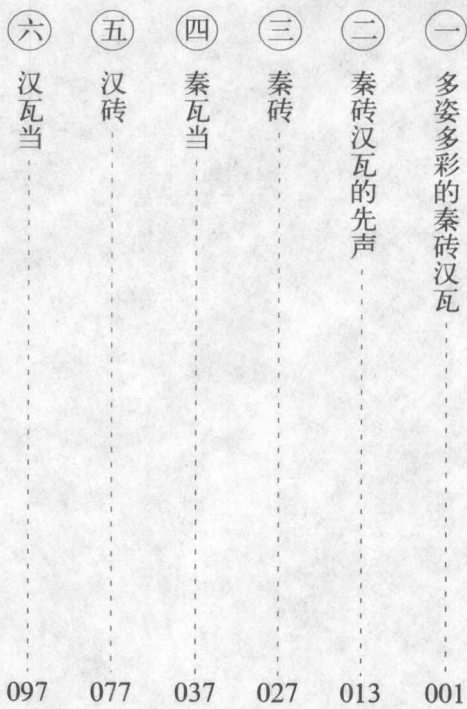 一 多姿多彩的秦砖汉瓦 001
二 秦砖汉瓦的先声 013
三 秦砖 027
四 秦瓦当 037
五 汉砖 077
六 汉瓦当 097